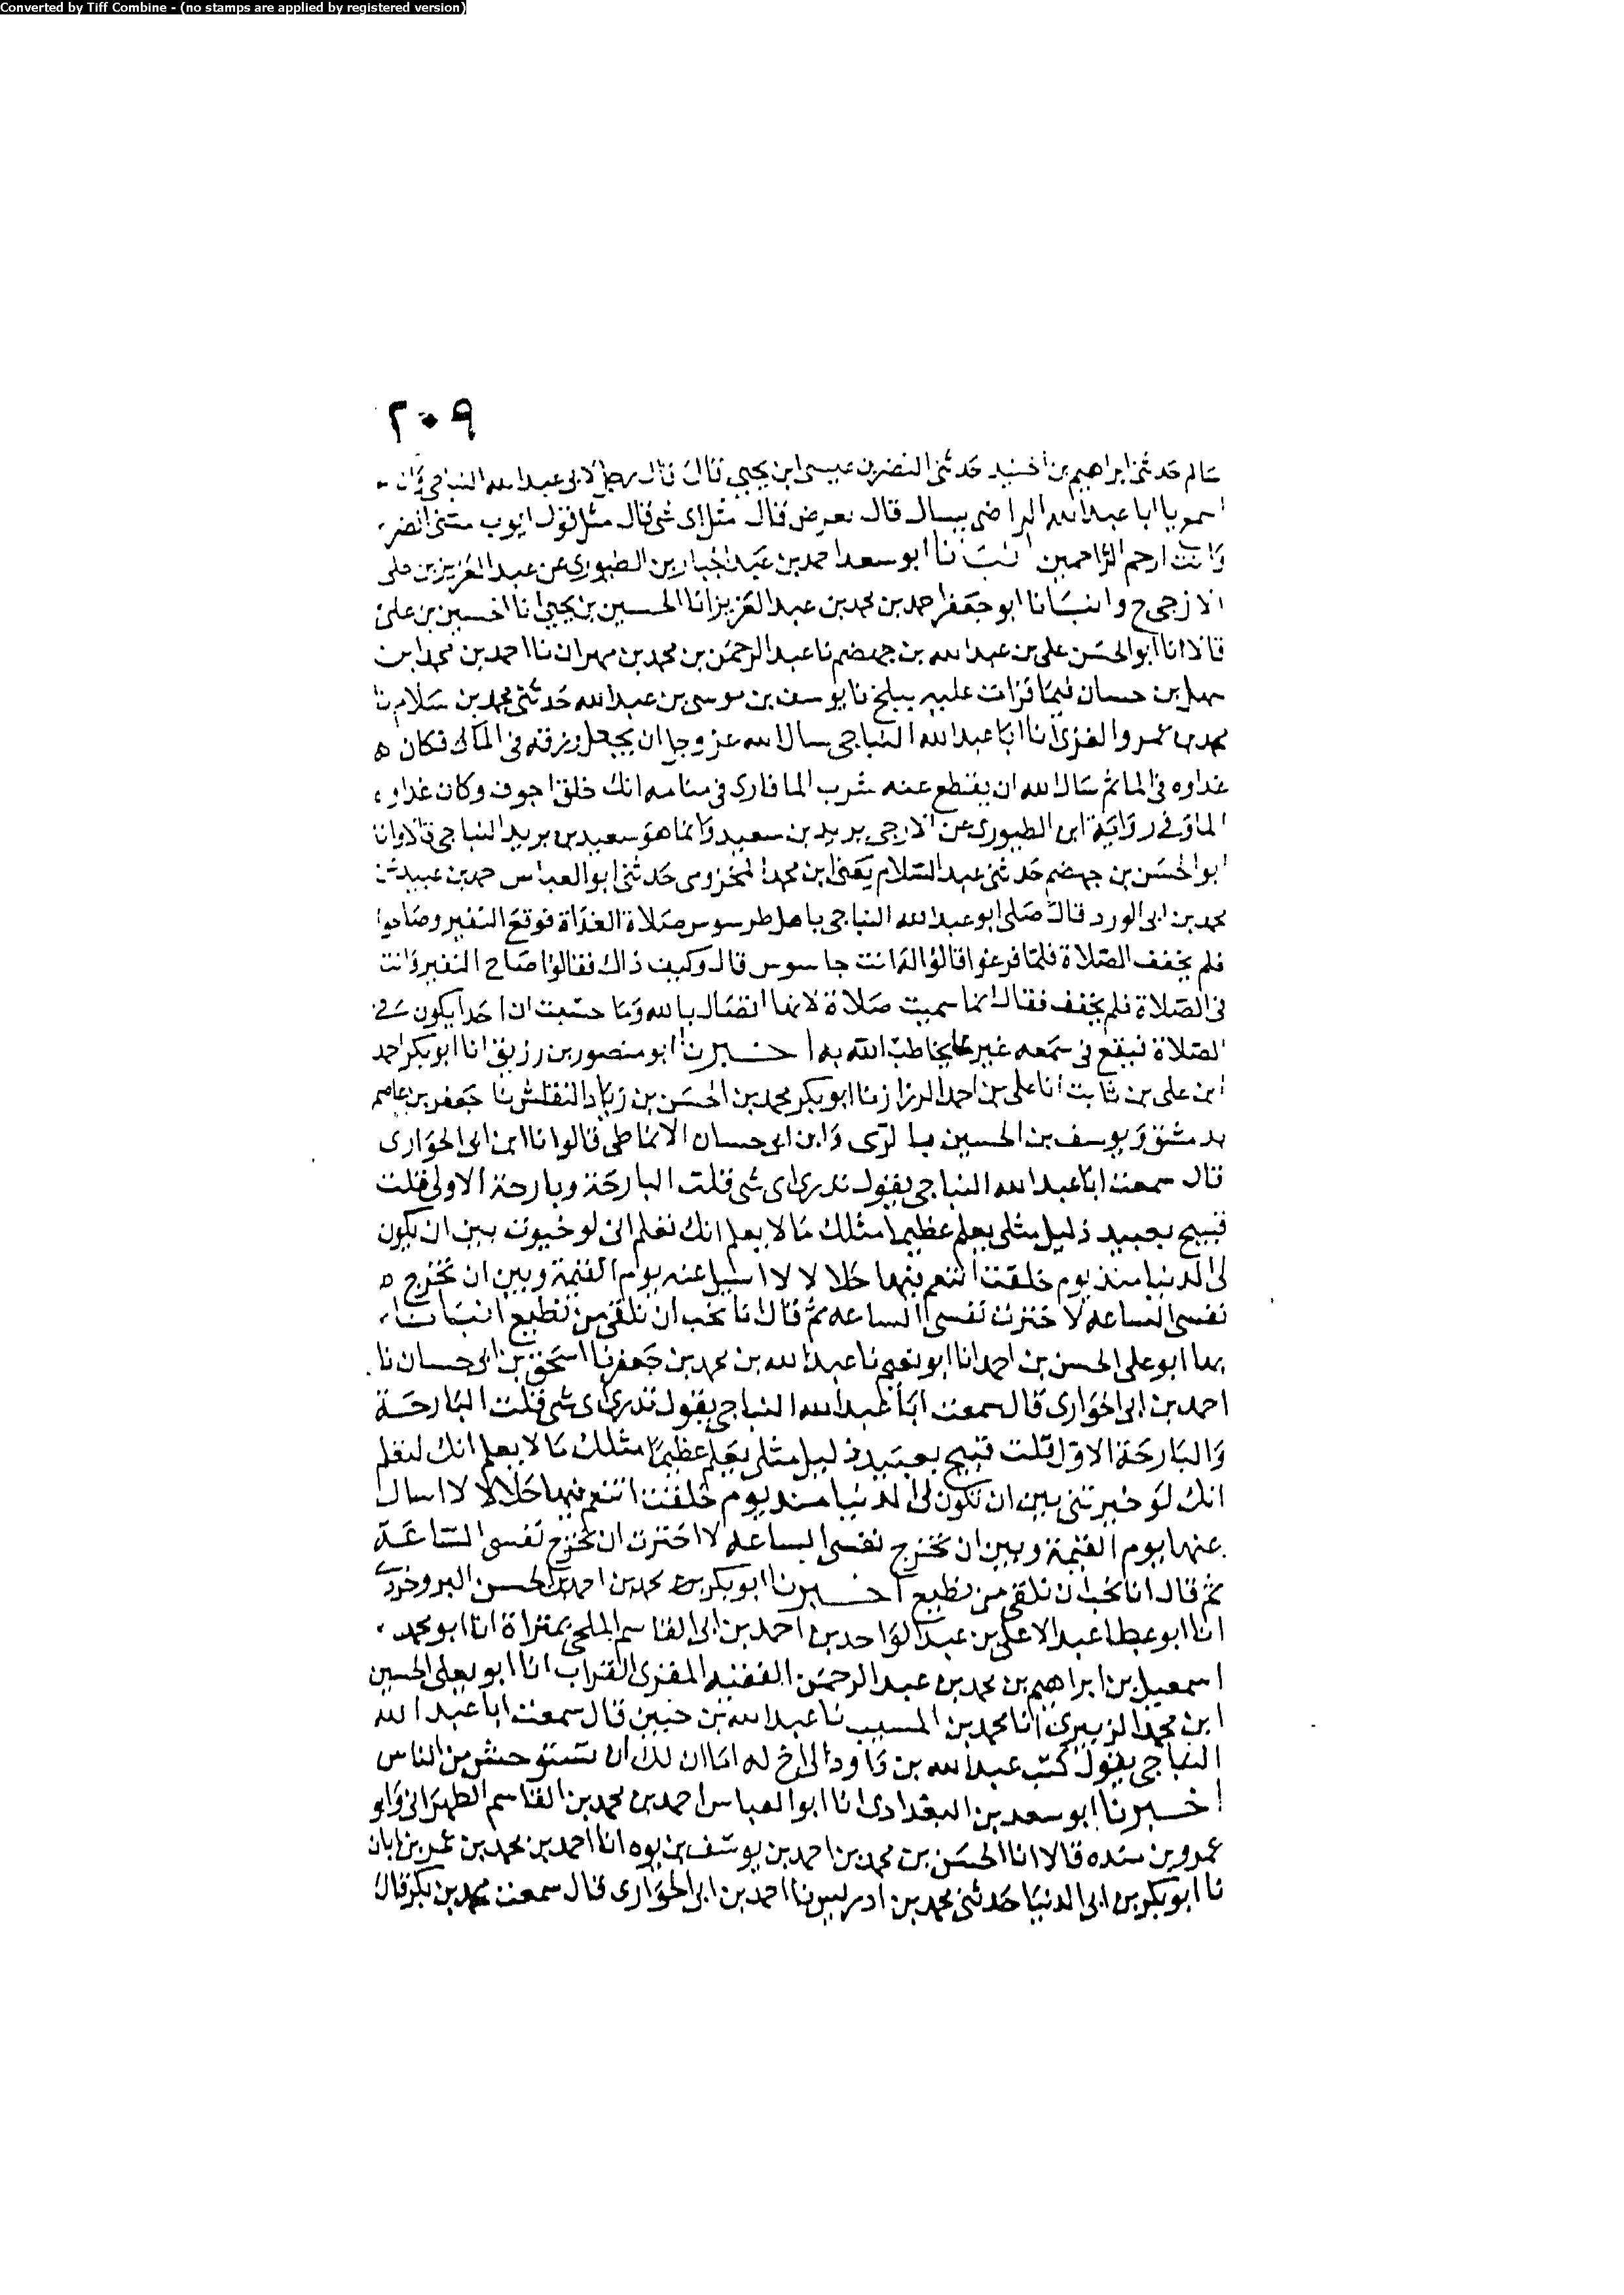 Converted by Tiff Combine - (no stamps are applied by registered version)
٢٠٩
سالم حدثني ابراهيم بن الجنيد حدثني النضر بن عيسى ابن يحيى قال قال رجل لابي عبد الله النباجي وانا
اسمع يا ابا عبد الله الراضي يسال قال يعرض قال مثل اي شي قال مثل قول ايوب مسني الضر
وانت ارحم الراحمين انبانا ابو سعد احمد بن عبد الجبار بن الطيوري عن عبد العزيز بن علي
الازجي ح وانبانا ابو جعفر احمد بن محمد بن عبد العزيز انا الحسين بن يحيى انا الحسين بن علي
قالا انا ابو الحسن علي بن عبد الله بن جهضم نا عبد الرحمن بن محمد بن مهران نا احمد بن محمد ابن
سهل بن حسان فيما قرات عليه ببلخ نا يوسف بن موسى بن عبد الله حدثني محمد بن سلام نا
محمد بن عمرو الغزي انا ابا عبد الله النباجي سال الله عز وجل ان يجعل رزقه في الماء فكان ه
غداوه في الما ثم سال الله ان يقطع عنه شرب الما فاري في منامه انك خلق اجوف وكان غداو
الما وفي رواية ابن الطيوري عن الازجي يزيد بن سعيد وانما هو سعيد بن بريد النباجي قالا وانا
ابو الحسن بن جهضم حدثني عبد السلام يعني ابن محمد المخزومي حدثني ابو العباس حمد بن عبيد
محمد بن ابي الورد قال صلى ابو عبد الله النباجي باهل طرسوس صلاة الغداة فوقع النفير وصاحوا
فلم يخفف الصلاة فلما فرغوا قالوا له انت جاسوس قال وكيف ذاك فقالوا صاح النفير وانت
في الصلاة فلم تخفف فقال انما سميت صلاة لانها اتصال بالله وما حسبت ان احدا يكون في
الصلاة فيقع في سمعه غير ما يخاطب الله به اخبرنا ابو منصور بن رزيق انا ابو بكر احمد
ابن علي بن ثابت انا علي بن احمد الرزاز نا ابو بكر محمد بن الحسن بن زياد النقاش نا جعفر بن عاصم
بدمشق ويوسف بن الحسين بالري وابن ابي حسان الانماطي قالوا نا ابن ابي الحواري
قال سمعت ابا عبد الله النباجي يقول تدري اي شي قلت البارحة وبارحة الاولى قلت
قبيح بعبيد ذليل مثلي يعلم عظيما مثلك ما لا يعلم انك تعلم اني لو خيرت بين ان يكون
لي الدنيا منذ يوم خلقت اتنعم فيها حلالا لا اسيل عنه يوم القيمة وبين ان تخرج ه
نفسي الساعه لاخترت نفسي الساعه ثم قال انا تحب ان تلقى من تطيع انبانا
بها ابو علي الحسن بن احمد انا ابو نعيم نا عبد الله بن محمد بن جعفر نا اسحق بن ابي حسان نا
احمد بن ابي الحواري قال سمعت ابا عبد الله النباجي يقول تدري اي شي قلت البارحة
والبارحة الاول قلت قبيح بعبيد ذليل مثلي يعلم عظيما مثلك ما لا يعلم انك لتعلم
انك لو خيرتني بين ان تكون لي الدنيا منذ يوم خلقت اتنعم فيها حلالا لا اسال
عنها يوم القيمة وبين ان تخرج نفسي الساعه لاخترت ان تخرج نفسي الساعة
ثم قال انا تحب ان تلقى من تطيع اخبرنا ابو بكر بن محمد بن احمد بن الحسن البروجردي
انا ابو عطا عبد الاعلى بن عبد الواحد بن احمد بن ابي القاسم المليحي بهراة انا ابو محمد
اسمعيل بن ابراهيم بن محمد بن عبد الرحمن الفقيه المقرئ القراب انا ابو يعلى الحسين
ابن محمد الزبيري انا محمد بن المسيب نا عبد الله بن خبيق قال سمعت ابا عبد الله
النباجي يقول كتب عبد الله بن داود الى اخ له اما ان لك ان تستوحش من الناس
اخبرنا ابو سعد بن البغدادي انا ابو العباس احمد بن محمد بن القاسم الطهراني وابو
عمرو بن منده قالا انا الحسن بن محمد بن احمد بن يوسف بن يوه انا احمد بن محمد بن عمر بن ابان
نا ابو بكر بن ابي الدنيا حدثني محمد بن ادريس نا احمد بن ابي الحواري قال سمعت محمد بن بكر قال